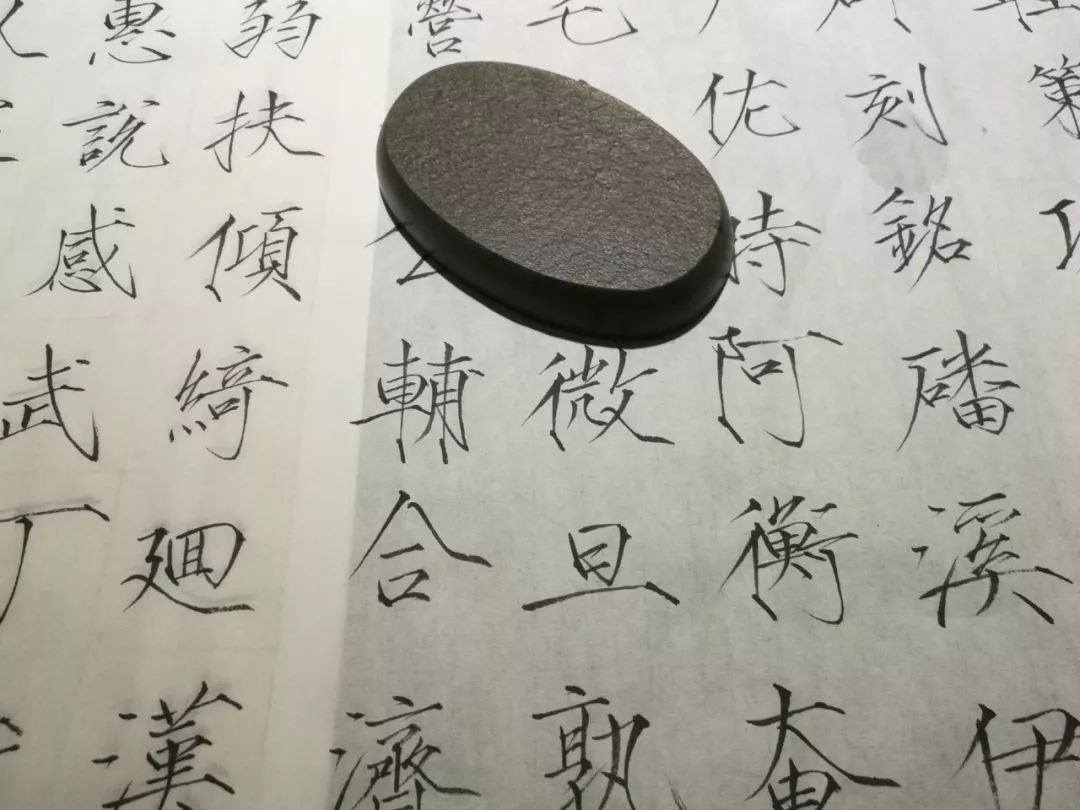 刻銘磻溪伊
佐時阿衡奄
宅微旦孰
營公輔合濟
弱扶傾綺廻漢
惠說感武丁